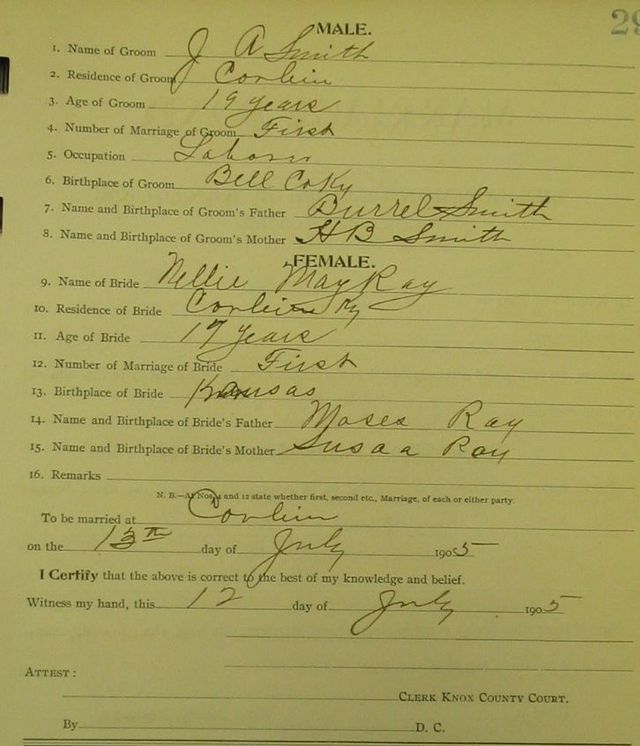 29
MALE.
1. Name of Groom J A Smith
2. Residence of Groom Corbin
3. Age of Groom 19 years
4. Number of Marriage of Groom First
5. Occupation
6. Birthplace of Groom Bell Co Ky
7. Name and Birthplace of Groom's Father Burrel Smith
8. Name and Birthplace of Groom's Mother H B Smith
FEMALE.
9. Name of Bride Nellie May Ray
10. Residence of Bride Corbin Ky
11. Age of Bride 17 years
12. Number of Marriage of Bride First
13. Birthplace of Bride Kansas
14. Name and Birthplace of Bride's Father Moses Ray
15. Name and Birthplace of Bride's Mother Susaa Ray
16. Remarks
N. B.—At Nos. 4 and 12 state whether first, second etc., Marriage, of each or either party.
To be married at Corbin
on the 13th day of July 1905
I Certify that the above is correct to the best of my knowledge and belief.
Witness my hand, this 12 day of July 1905
ATTEST:
CLERK KNOX COUNTY COURT.
By D. C.